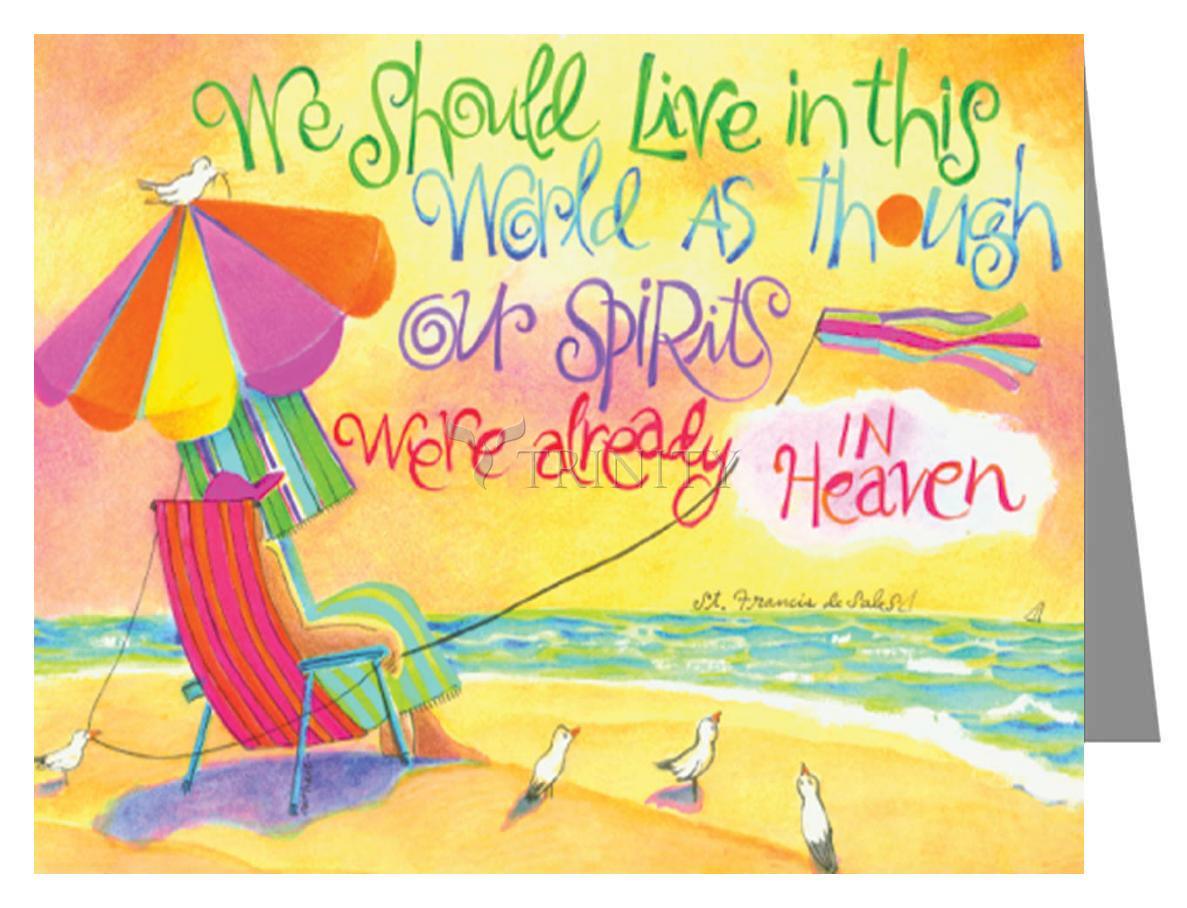 We Should Live in this
World As though
our Spirits
were already
IN
Heaven
TRINITY
St. Francis de Sales